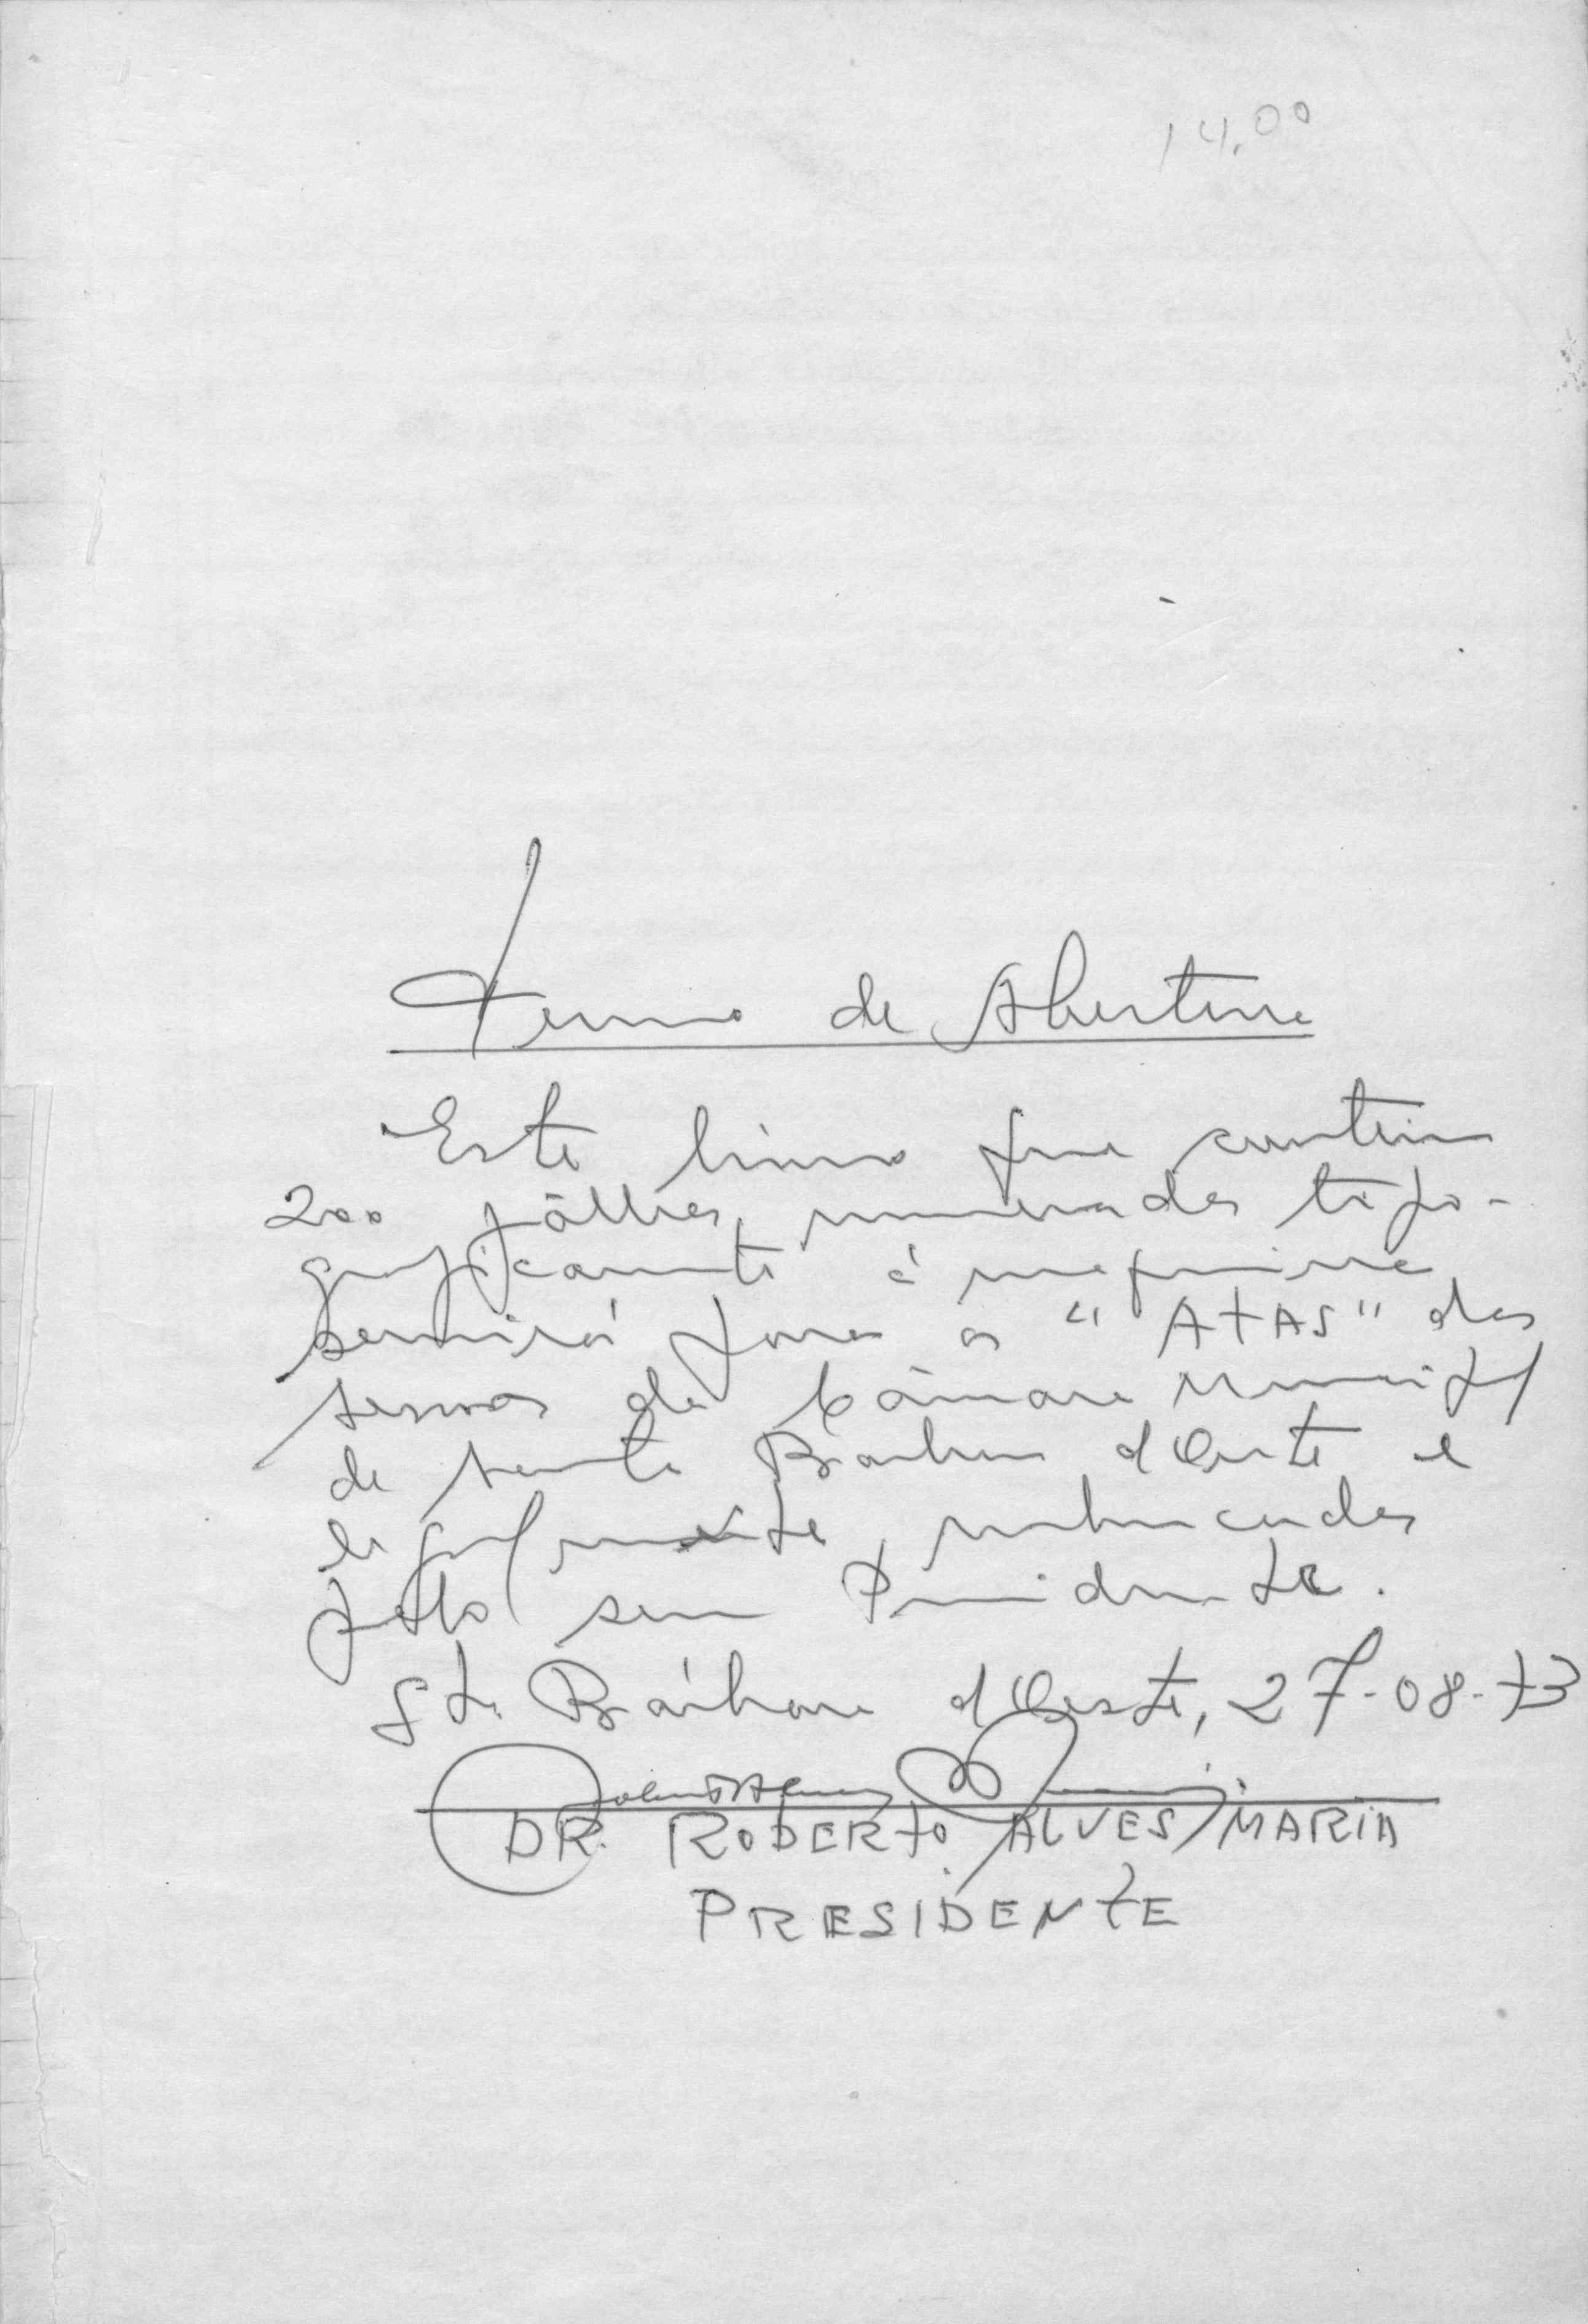 14,00
Termo de Abertura
Este livro que contem
200 fôlhas, numeradas tipo-
graficamente à maquina
servirá para as "ATAS" das
sessões da Câmara Municipal
de Santa Barbara d'Oeste e
legalmente rubricadas
pelo seu Presidente.
Sta Bárbara d'Oeste, 27-08-73
DR. ROBERTO ALVES MARIA
PRESIDENTE